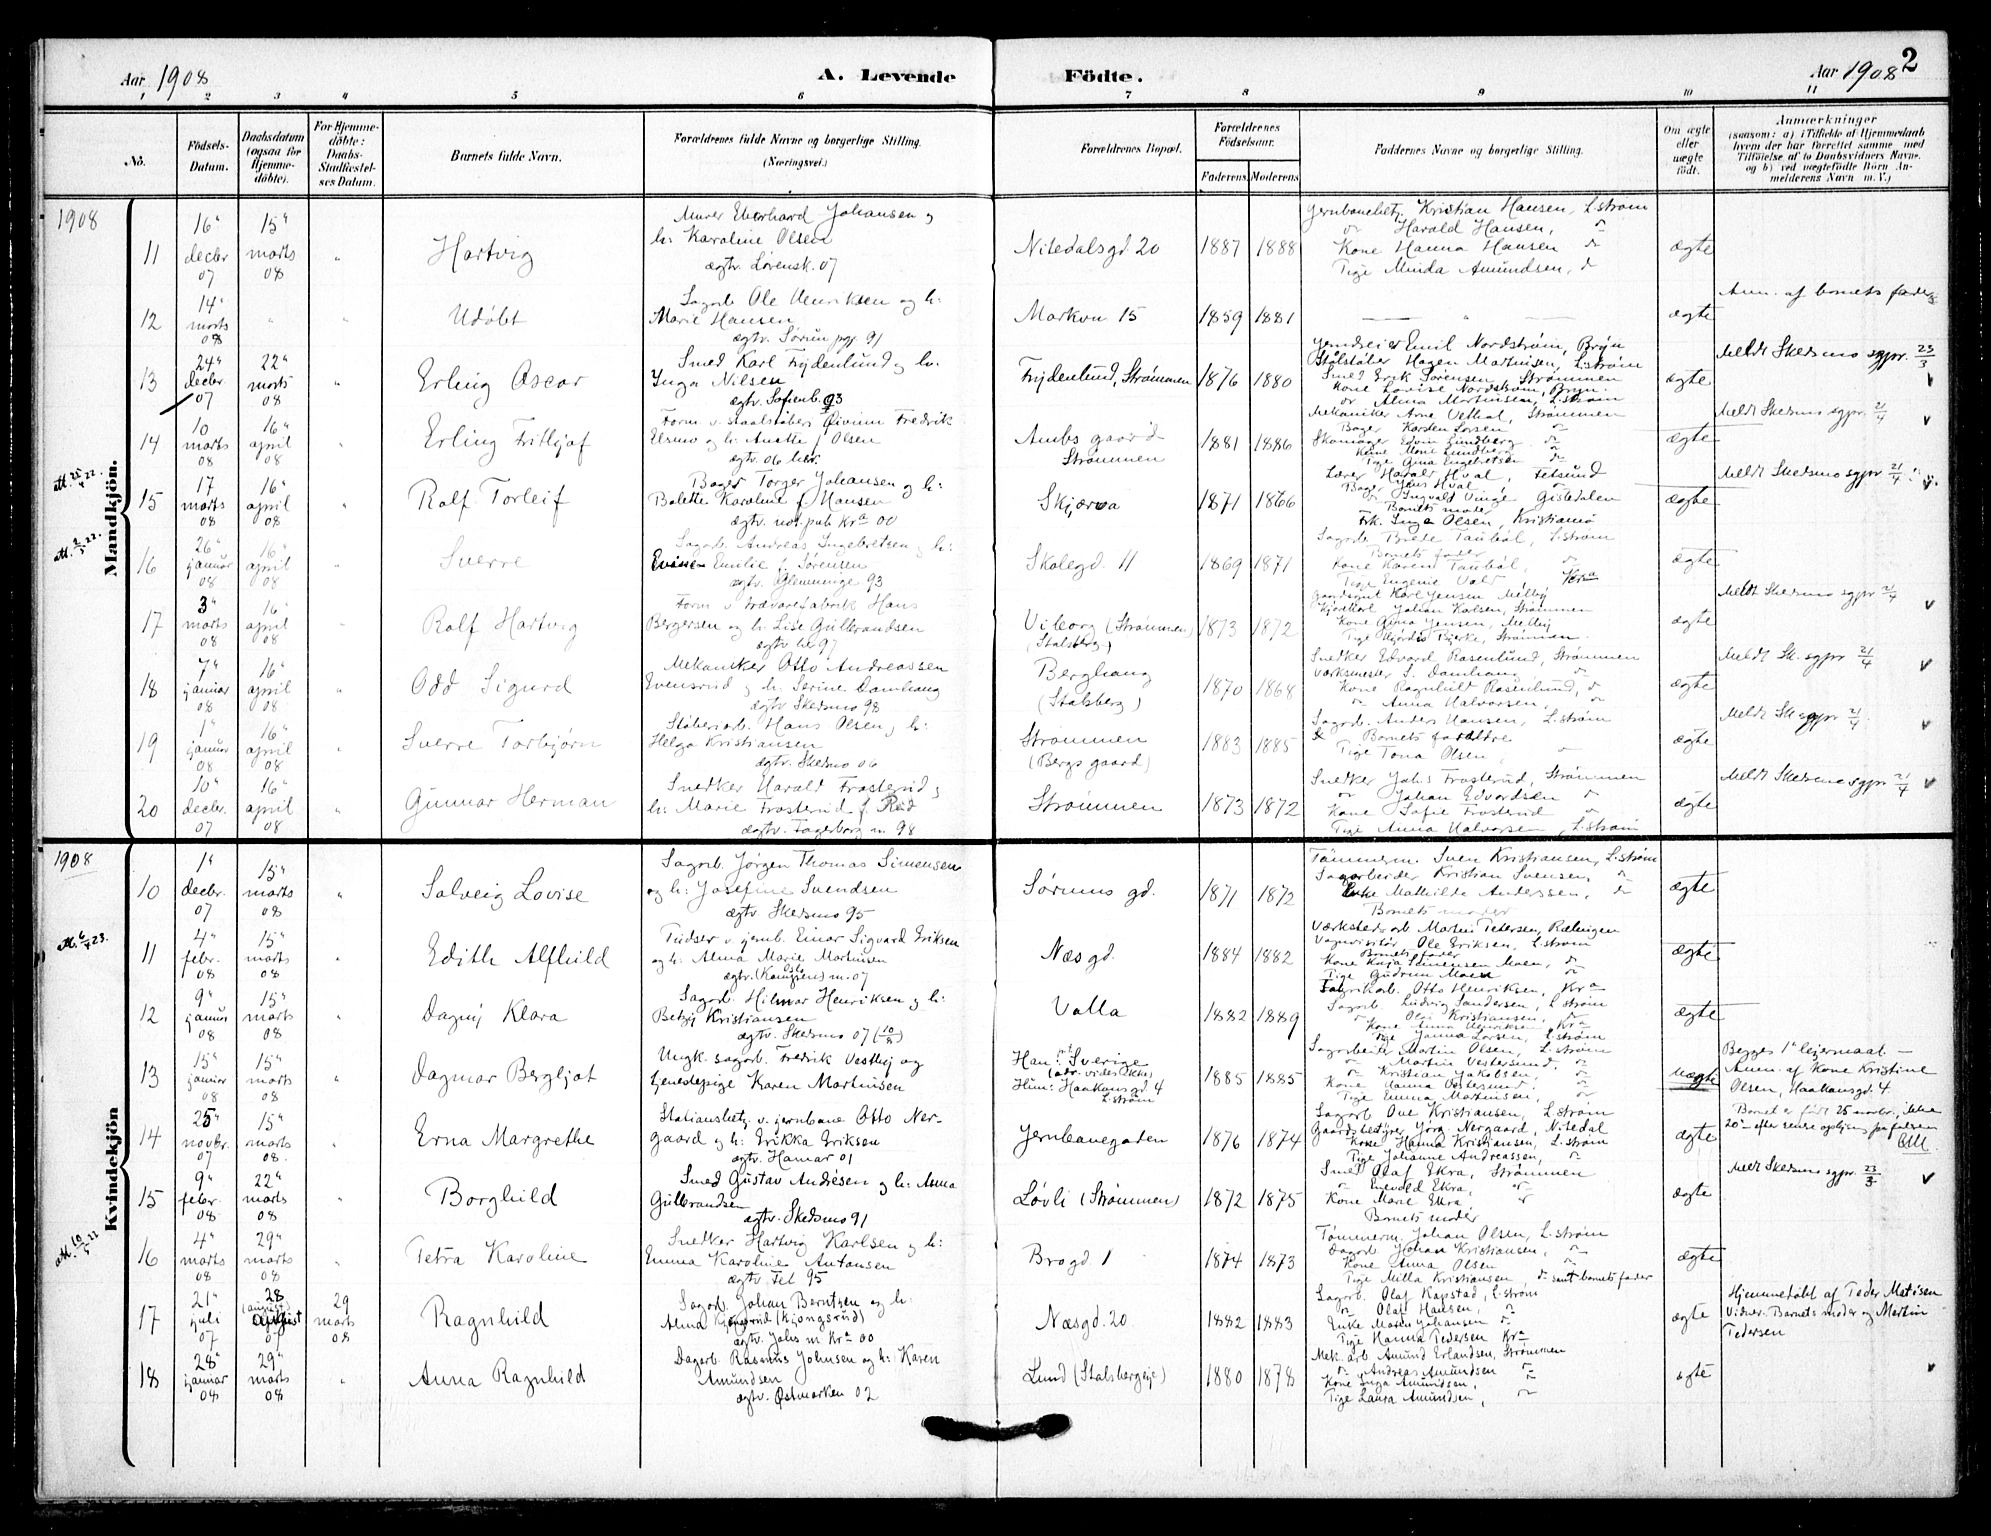 Aar 1908
A. Levende
Födte.
Aar 1908
2
1 2 3 4 5 6 7 8 9 10 11
No.
Födsels-
Datum.
Daabsdatum
(ogsaa for
Hjemme-
döbte).
For Hjemme-
döbte:
Daabs-
Stadfæstel-
ses Datum.
Barnets fulde Navn.
Forældrenes fulde Navne og borgerlige Stilling.
(Næringsvei.)
Forældrenes Bopæl.
Forældrenes
Födselsaar.
Faderens. Moderens.
Faddernes Navne og borgerlige Stilling.
Om ægte
eller
uægte
født.
Anmærkninger
(saasom: a) i Tilfælde af Hjemmedaab
hvem der har forrettet samme med
Tilföielse af to Daabsvidners Navne,
og b) ved uægtefödte Börn An-
melderens Navn m. V.)
1908
Mandkjön.
11
16"
decbr
07
15"
marts
08
"
Hartvig
Murer Eberhard Johansen og
h: Karoline Olsen
ægtv. Lørensk. 07
Nitedalsgd 20
1887 1888
Jernbanebetj. Kristian Hansen, L.strøm
Harald Hansen,
Kone Hanna Hansen
Pige Minda Amundsen,
ægte
12
14"
marts
08
Udøbt
Sagarb. Ole Henriksen og h:
Marie Hansen
ægtv. Sørum pgj. 91
Markvn 15
1859 1881
ægte
Anm. af barnets fader
13
24"
decbr.
07
22"
marts
08
Erling Oscar
Smed Karl Frydenlund og h:
Inga Nilsen
ægtv. Sofienb. 93
Frydenlund, Strømmen
1876 1880
Emil Nordstrøm, Bryn
Stålstøber Hagen Martinsen, L.strøm
Smed Erik Sørensen, Strømmen
Kone Lovise Nordstrøm, Bryn
Alma Martinsen, L.strøm
ægte
Meldt Skedsmo sgpr. 23/3
14
10
marts
08
16"
april
08
Erling Fritjof
Form. v. staalstøberi Eivind Fredrik
h: Anette f. Olsen
ægtv. 06 her.
gaard
Strømmen
1881 1886
Mekaniker Arne Vethal, Strømmen
Bager Karsten Larsen
Skomager Edvin Lundberg
Kone Marie Lundberg
Pige Gina Engebretsen
ægte
Meldt Skedsmo sgpr 21/4
att. 25/4 22.
15
17
marts
08
16"
april
08
Rolf Torleif
Bager Torger Johansen og h:
Bolette Karoline f. Hansen
ægtv. not. pub. Kra 00
Skjærva
1871 1866
Lærer Harald Hval, Fetsund
Bager Jens Hval
Ingvald Vinge Gisledalen
Barnets moder
Frk. Inga Olsen, Kristiania
ægte
Meldt Skedsmo sgpr 21/4
att. 2/5 22.
16
26"
januar
08
16"
april
08
Sverre
Sagarb. Andreas Ingebretsen og h:
Emilie f. Sørensen
ægtv. Glemminge 93
Skolegd. 11
1869 1871
Sagarb. Brede Taubøl, L.strøm
Barnets fader
Kone Karen Taubøl,
Pige Eugenie Vold, Kra
ægte
17
3"
marts
08
16"
april
08
Rolf Hartvig
Form. v. trævarefabrik Hans
Bergersen og h: Lise Gulbrandsen
ægtv. her 97
Viborg (Strømmen)
(Stalsberg)
1873 1872
Karl Jensen, Melby
Johan Karlsen, Strømmen
Kone Anna Jensen, Melby
Pige Hjørdis Bjerke, Strømmen
ægte
Meldt Skedsmo sgpr 21/4
18
7"
januar
08
16"
april
08
Odd Sigurd
Mekaniker Otto Andreassen
Evensrud og h: Serine Damhaug
ægtv. Skedsmo 98
Berghaug
(Stalsberg)
1870 1868
Snedker Edvard Rosenlund, Strømmen
Værksmester S. Damhaug
Kone Ragnhild Rosenlund,
Anna Halvorsen,
ægte
Meldt Sk. sgpr 21/4
19
1"
januar
08
16"
april
08
Sverre Torbjørn
Støberiarb. Hans Olsen, h:
Helga Kristiansen
ægtv. Skedsmo 06
Strømmen
(Bergs gaard)
1883 1885
Sagarb. Anders Hansen, L.strøm
Barnets forældre
Pige Tona Olsen,
ægte
Meldt Sk sgpr 21/4
20
10"
decbr.
07
16"
april
08
Gunnar Herman
Snedker Harald Frosterud,
h: Marie Frosterud f. Rød
ægtv. Fagerborg m. 98
Strømmen
1873 1872
Snedker Johs Frosterud, Strømmen
Johan Edvardsen
Kone Sofie Frosterud
Pige Anna Halvorsen, L.strøm
ægte
Meldt Skedsmo sgpr 21/4
1908
Kvindekjön
10
1"
decbr.
07
15"
marts
08
Solveig Lovise
Sagarb. Jørgen Thomas Simensen
og h: Josefine Svendsen
ægtv. Skedsmo 95
Sørums gd.
1871 1872
Tømmerm. Sven Kristiansen, L.strøm
Sagarbeider Kristian Svensen,
Enke Mathilde Anderssen,
Barnets moder
ægte
att. 6/4 23.
11
4"
febr.
08
15"
marts
08
Edith Alfhild
Pudser v. jernb. Einar Sigvard Eriksen
og h: Alma Marie Martinsen
ægtv. (Kampens) m. 07
Næsgd.
1884 1882
Værkstedsarb. Martin Petersen, Rælingen
Vognvisitør Ole Eriksen, L.strøm
Barnets fader
Kone Kaja Simensen Moen,
Pige Gudrun Moen
ægte
12
9"
januar
08
15"
marts
08
Dagny Klara
Sagarb. Hilmar Henriksen og h:
Betzy Kristiansen
ægtv. Skedsmo 07 (10/8)
Volla
1882 1889
Fabrikarb. Otto Henriksen, Kra
Sagarb. Ludvig Sandersen, L.strøm
Olai Kristiansen,
Kone Anna Henriksen, Kra
Pige Janna Larsen, L.strøm
ægte
13
15"
januar
08
15"
marts
08
Dagmar Bergljot
Ungk. sagarb. Fredrik Vestby og
tjenestepige Karen Martinsen
Han: i Sverige
(adr. vides ikke)
Hun: Haakonsgd 4
L.strøm
1885 1885
Sagarbeid. Martin Olsen, L.strøm
Martin Vestersund,
Kristian Jakobsen,
Kone Hanna Vestersund,
Pige Emma Martinsen,
uægte
Begges 1ste leiermaal —
Anm. af Kone Kristine
Olsen, Haakonsgd. 4.
14
25"
novbr.
07
15"
marts
08
Erna Margrethe
Stationsbetj. v. jernbane Otto Ner-
gaard og h: Erikka Eriksen
ægtv. Hamar 01
Jernbanegaten
1876 1874
Sagarb. Ove Kristiansen, L.strøm
Gaardsbestyrer Jörg. Nergaard, Nitedal
Kone Hanna Kristiansen, L.strøm
Pige Johanne Andreassen,
ægte
Barnet er født 25 novbr., ikke
20" efter senere oplysn. paa falsen
15
9"
febr.
08
22"
marts
08
Borghild
Smed Gustav Andrésen og h: Anna
Gulbrandsen
ægtv. Skedsmo 91
Løvli (Strømmen)
1872 1875
Smed Olaf Ekra, Strømmen
Enevold Ekra,
Kone Marie Ekra
Barnets moder
ægte
Meldt Skedsmo sgpr. 23/3
att. 10/5 22
16
4"
marts
08
29"
marts
08
Petra Karoline
Snedker Hartvig Karlsen og h:
Emma Karoline Antonsen
ægtv. Fet 95
Brogd. 1
1874 1873
Tømmerm. Johan Olsen, L.strøm
Dagarb. Johan Kristiansen,
Kone Anna Olsen
Pige Milla Kristiansen, samt barnets fader
ægte
17
21"
juli
07
28
(august)
07
29
marts
08
Ragnhild
Sagarb. Johan Berntsen og h:
Alma (Kjongsrud)
ægtv. Johs m. Kra 00
Næsgd. 20
1882 1883
Sagarb. Olaf Kapstad, L.strøm
Olaf Hansen,
Enke Maren Johansen
Pige Hanna Pedersen Kra
ægte
Hjemmedøbt af Peder Matisen
Vidner: Barnets moder og Martin
Pedersen
18
28"
januar
08
29"
marts
08
Anna Ragnhild
Dagarb. Rasmus Johnsen og h: Karen
Amundsen
ægtv. Østmarken 02
Lund (Stalsbergeje)
1880 1878
Mek. arb. Amund Erlandsen, Strømmen
Andreas Amundsen
Kone Inga Amundsen,
Pige Laura Amundsen,
ægte